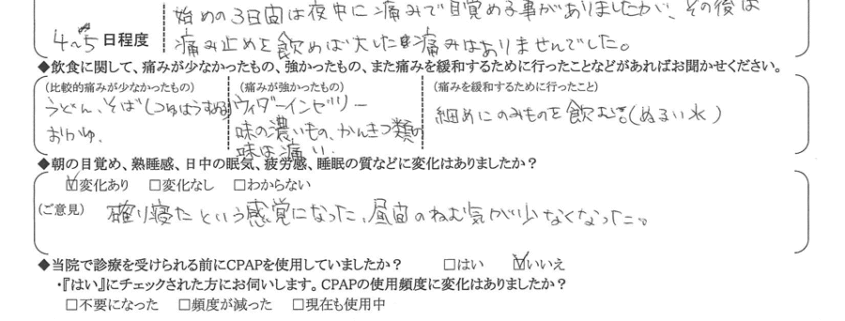 始めの3日間は夜中に痛みで目覚める事がありましたが、その後は
4〜5日程度 痛み止めを飲めば大した痛みはありませんでした。
◆飲食に関して、痛みが少なかったもの、強かったもの、また痛みを緩和するために行ったことなどがあればお聞かせください。
(比較的痛みが少なかったもの) (痛みが強かったもの) (痛みを緩和するために行ったこと)
うどん、そば(つゆはうすめ) ウィダーインゼリー 細めにのみものを飲む(ぬるい水)
おかゆ、 味の濃いもの、かんきつ類の
味は痛い
◆朝の目覚め、熟睡感、日中の眠気、疲労感、睡眠の質などに変化はありましたか?
☑変化あり □変化なし □わからない
(ご意見) 確り寝たという感覚になった、昼間のねむ気が少なくなった。
◆当院で診療を受けられる前にCPAPを使用していましたか? □はい ☑いいえ
・『はい』にチェックされた方にお伺いします。CPAPの使用頻度に変化はありましたか?
□不要になった □頻度が減った □現在も使用中